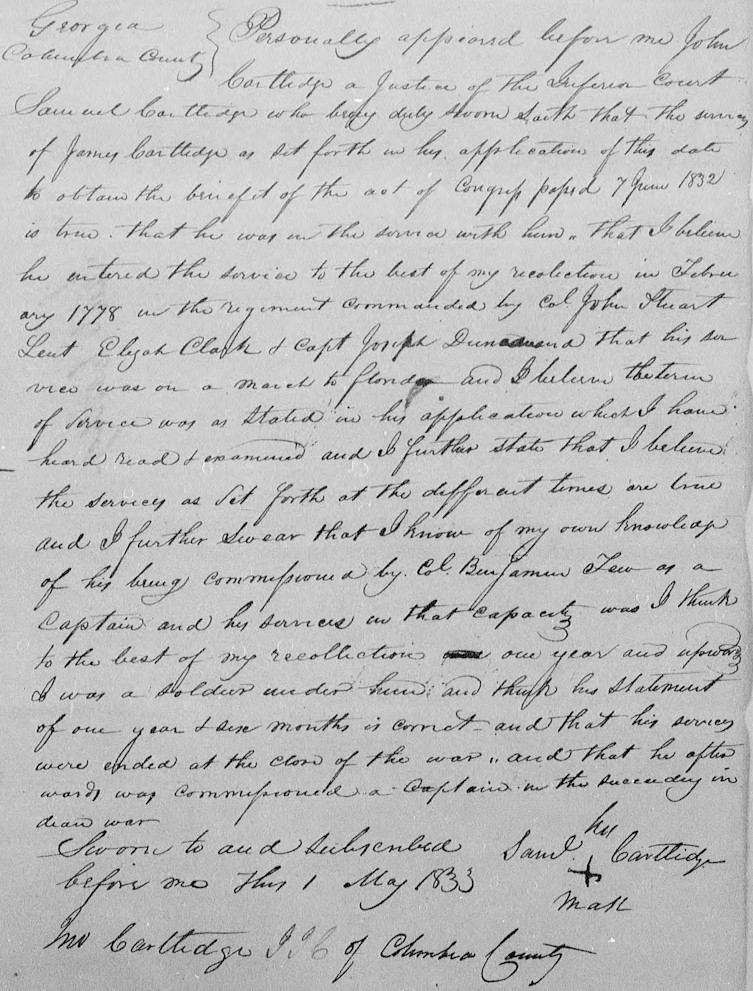 Georgia
Columbia County } Personally appeared before me John
Cartledge a Justice of the Inferior Court
Samuel Cartledge who being duly sworn saith that the services
of James Cartledge as set forth in his application of this date
to obtain the benefit of the act of Congress passed 7 June 1832
is true. that he was in the service with him,, that I believe
he entered the service to the best of my recolection in Febru
ary 1778 in the regiment commanded by Col. John Stuart
Leut Elijah Clark & Capt Joseph and that his ser
vice was on a march to Florida and I believe the term
of service was as stated in his application which I have
heard read & examined and I further state that I believe
the services as set forth at the different times are true
and I further swear that I know of my own knowledge
of his being commissioned by Col. Benjamin Few as a
Captain and his services in that capacity was I think
to the best of my recollection one year and upwards
I was a soldier under him and think his statement
of one year & six months is correct and that his services
were ended at the close of the war,, and that he after
wards was commissioned a Captain in the succeeding in
dean war
Sworn to and subscribed Saml. his + mark Cartledge
before me this 1 May 1833
Jno Cartledge J.I.C of Columbia County